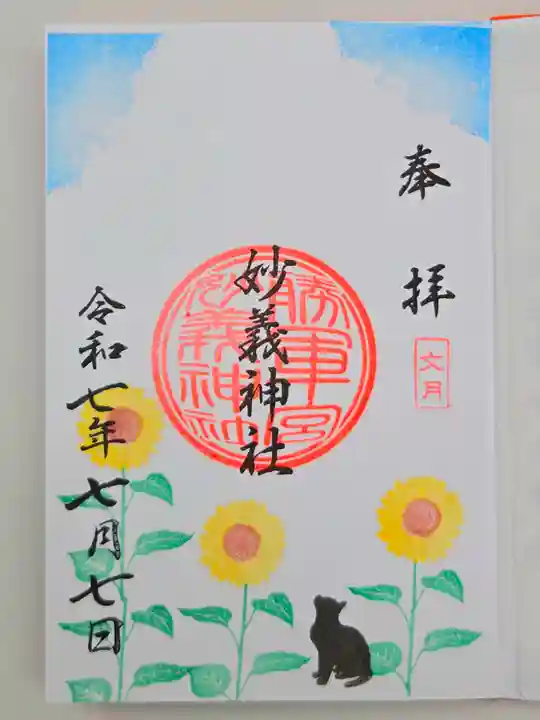 奉拝
文月
妙義神社
勝軍宮
妙義神社
令和七年七月七日